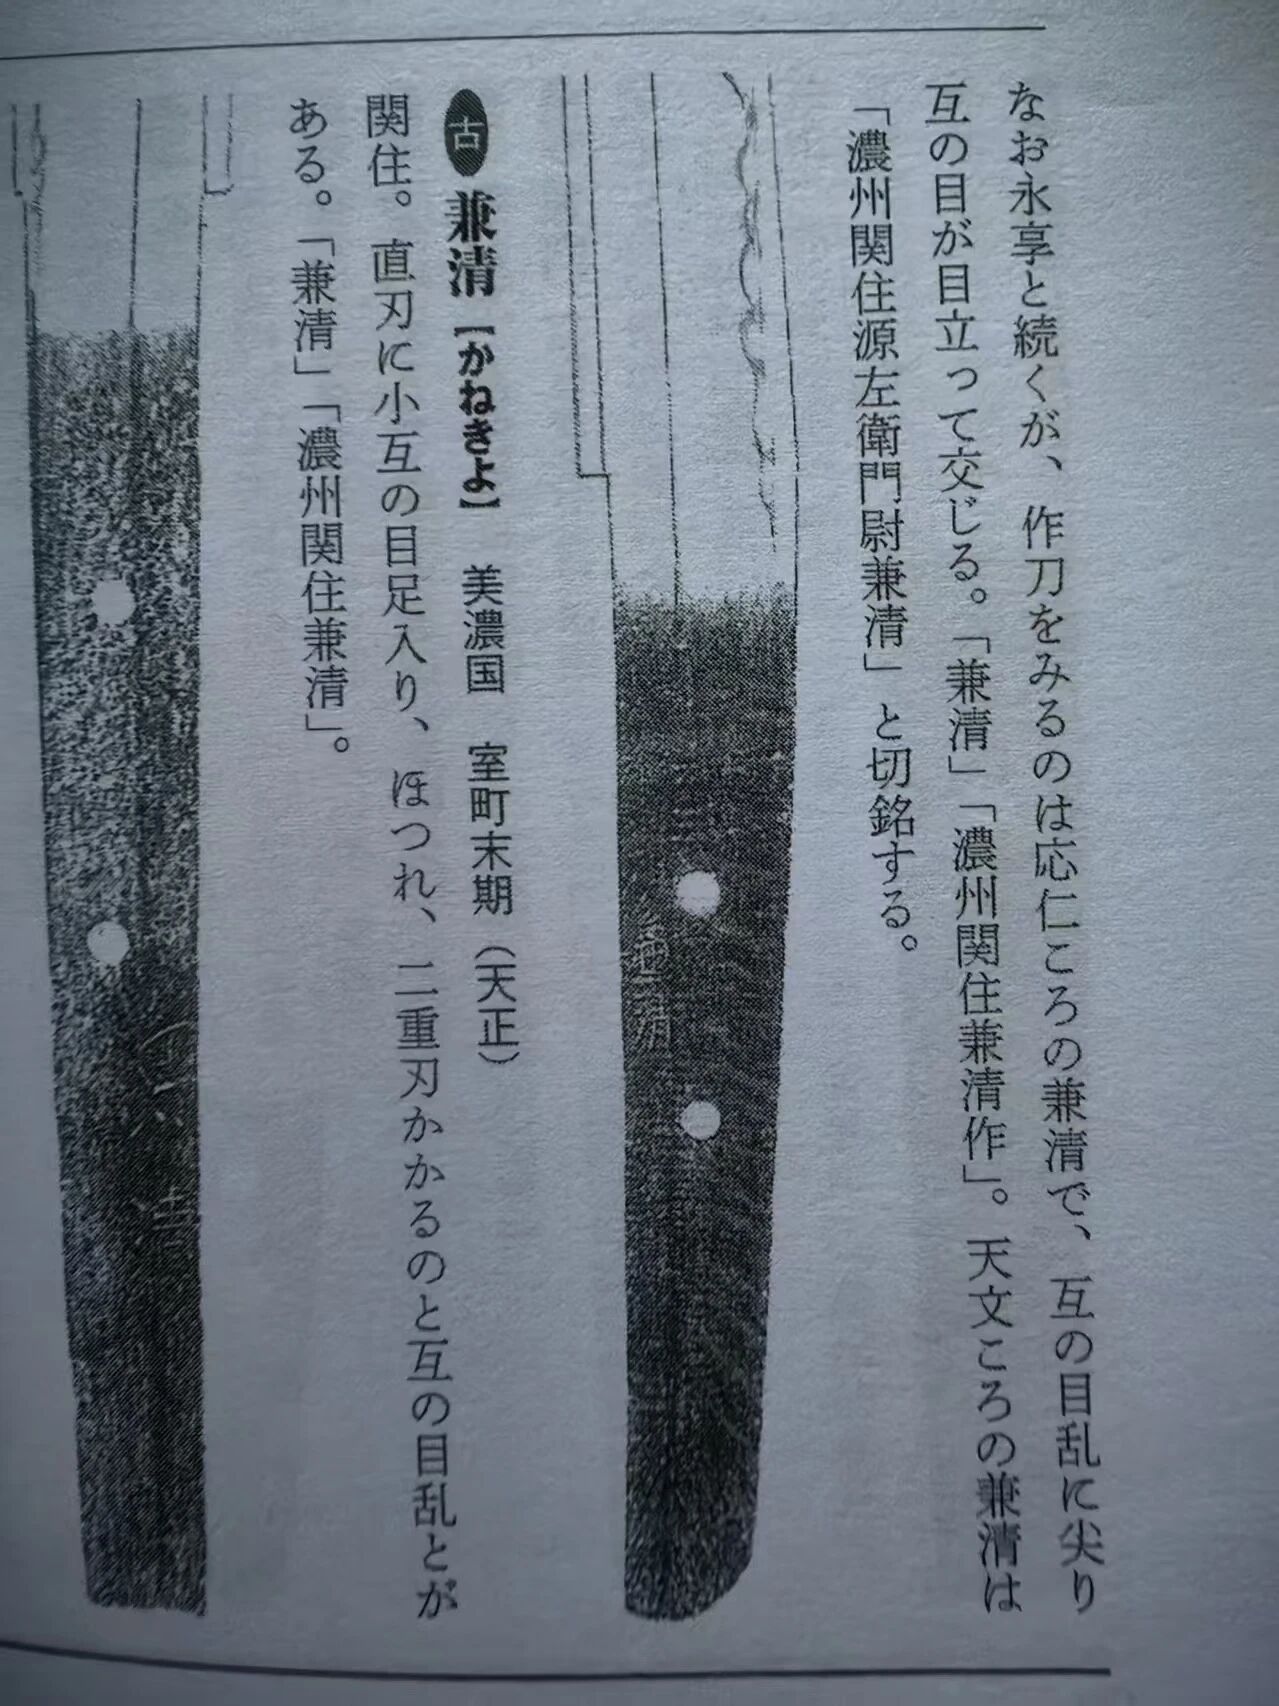 なお永享と続くが、作刀をみるのは応仁ころの兼清で、互の目乱に尖り
互の目が目立って交じる。「兼清」「濃州関住兼清作」。天文ころの兼清は
「濃州関住源左衛門尉兼清」と切銘する。
兼清
古 兼清【かねきよ】 美濃国 室町末期（天正）
関住。直刃に小互の目足入り、ほつれ、二重刃かかるのと互の目乱とが
ある。「兼清」「濃州関住兼清」。